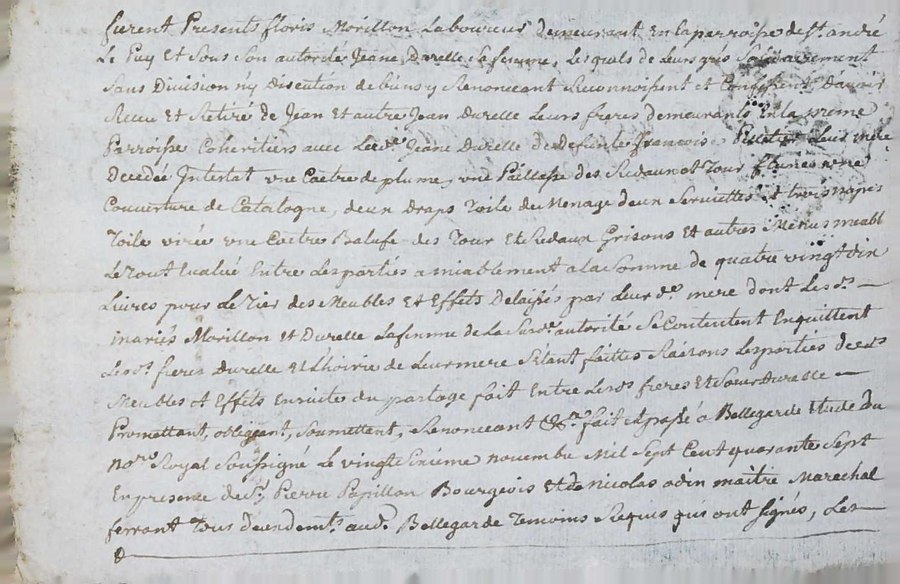 furent Presents floris Morillon Laboureur demeurant En la parroisse de St. andré
Le Puy Et Sous Son autorité Jeane Durelle Sa femme, Lesquels de Leurs grés Solidairement
Sans Division ny Discution de biens y Renonceant Reconnoissent et Confessent D'avoir
Receu et Retiré de Jean Et autre Jean durelle Leurs freres demeurants En la meme
Parroisse Coheritiers avec Lad. Jeane Durelle de Defunte francoise Leur mere
decedée Intestat une Coetre de plume, une Paillasse des Rideaux et Tour une
Couverture de Catalogne, deux draps Toile du Menage deux Serviettes Et trois napes
Toile virée une Coetre Balufe des Tour Et Ridaux Grisons Et autres Menus meubl
Le Tout Evalué Entre Les parties amiablement a la Somme de quatre vingt dix
Livres pour Le Tier des Meubles Et Effets Delaissés par Leur de. mere dont Les ds. —
mariés Morillon et Durelle La femme de La Susde. autorité Se Contentent En quittent
Les ds. freres Durelle et L'hoirie de Leur mere Setant faittes Raisons Les parties desds.
Meubles et Effets En Suittes du partage fait Entre Les ds. freres Et Sœur durelle —
Promettant, obligeant, Soumettant, Renonceant &ca. fait et passé à Bellegarde Etude du
nore. Royal Soussigné Le vingt Sixieme novembre Mil Sept Cent quarante Sept
En presence de Sr. Pierre Papillon Bourgeois Et de Nicolas odin maitre Marechal
ferrant Tous deux demts. aud. Bellegarde Temoins Requis qui ont Signés, Les —